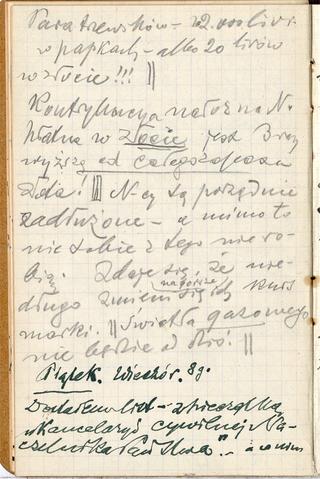 Para trzewików – 22.000 lirów
w papkach – albo 20 lirów
w złocie!!! ||
Kontrybucya nałożna N.
kłalna w złocie jest 3 razy
wyższą od całego zapasu
złota! || N-cy są porządnie
zadłużone – a mimo to
nic sobie z tego nie ro-
bią. Zdaje się, że nie-
długo zmieni się ich kurs
na gorsze
marki. || Światła gazowego
nie będzie od dziś! ||
Piątek. Wieczór. 8 g.
Dostałem list – z pieczątką
"Kancelaryi cywilnej Na-
czelnika Państwa". – a w nim